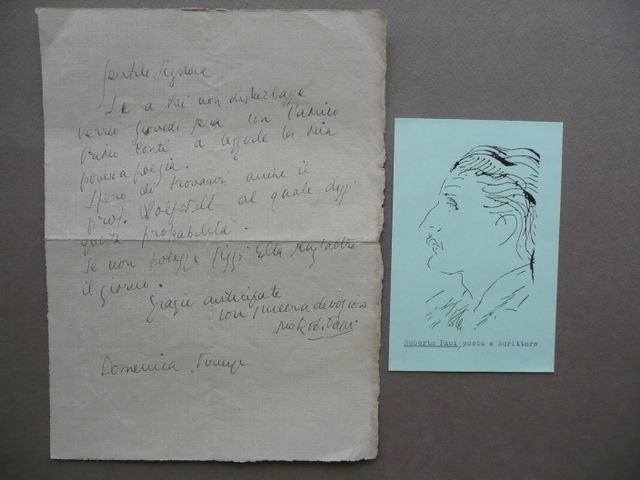 Gentile Signora
Se a Lei non disturbasse
verrei giovedì sera con l'amico
Primo Conti a leggerle la mia
povera poesia.
Spero di trovarvi anche il
prof. al quale dissi
questa probabilità.
Se non potesse fissi Ella
il giorno.
Grazie anticipate
con sincera devozione
Papi
Domenica
Roberto Papi, poeta e scrittore